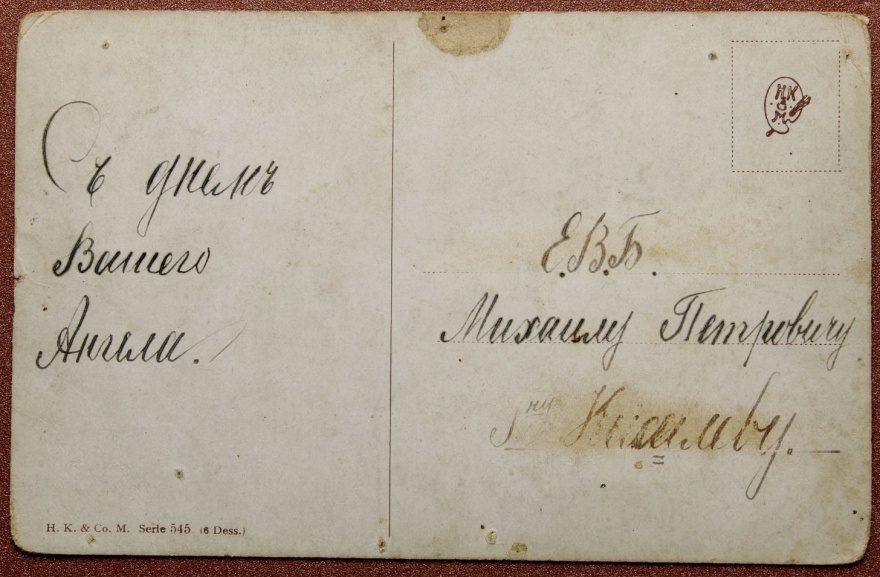 Съ днемъ
Вашего
Ангела.
H. K. & Co. M. Serie 545 (6 Dess.)
HK
& 
M.
Е.В.Б.
Михаилу Петровичу
Гну